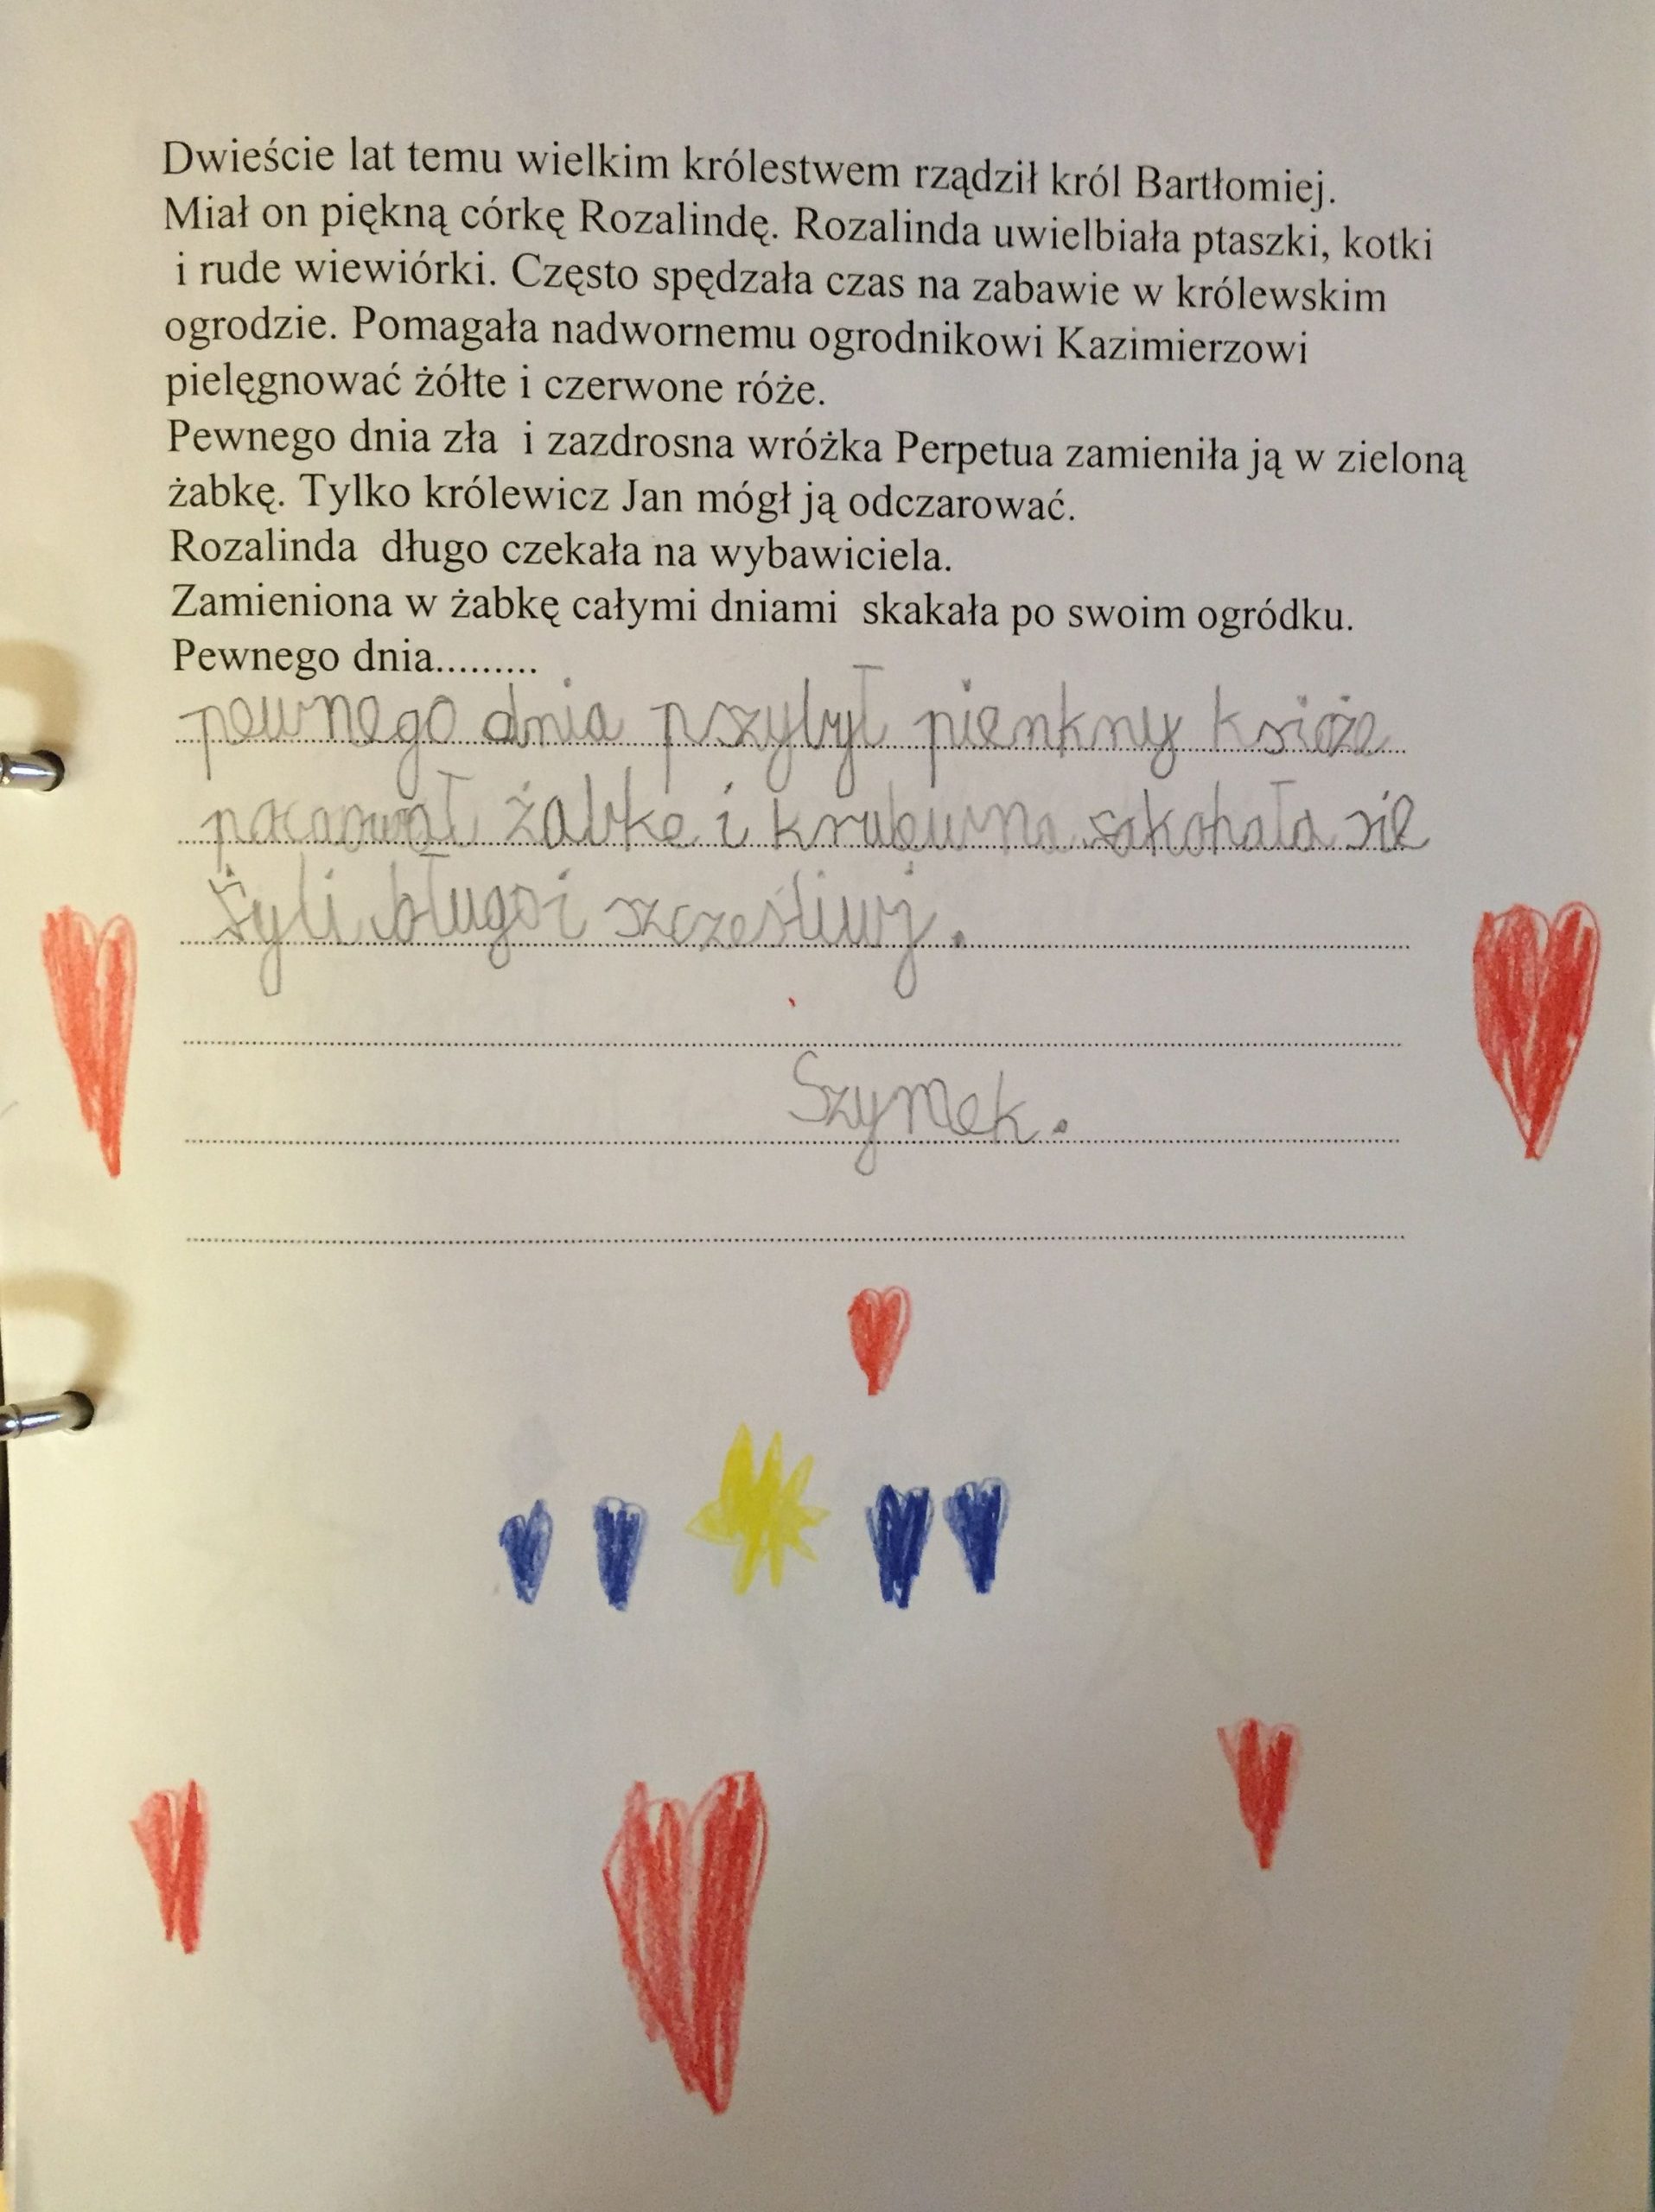 Dwieście lat temu wielkim królestwem rządził król Bartłomiej.
Miał on piękną córkę Rozalindę. Rozalinda uwielbiała ptaszki, kotki
i rude wiewiórki. Często spędzała czas na zabawie w królewskim
ogrodzie. Pomagała nadwornemu ogrodnikowi Kazimierzowi
pielęgnować żółte i czerwone róże.
Pewnego dnia zła i zazdrosna wróżka Perpetua zamieniła ją w zieloną
żabkę. Tylko królewicz Jan mógł ją odczarować.
Rozalinda długo czekała na wybawiciela.
Zamieniona w żabkę całymi dniami skakała po swoim ogródku.
Pewnego dnia.........
pewnego dnia pszybył pienkny ksioże
żabke i krulewna sakohała sie
żyli długo i szcześliwj.
Szymek.